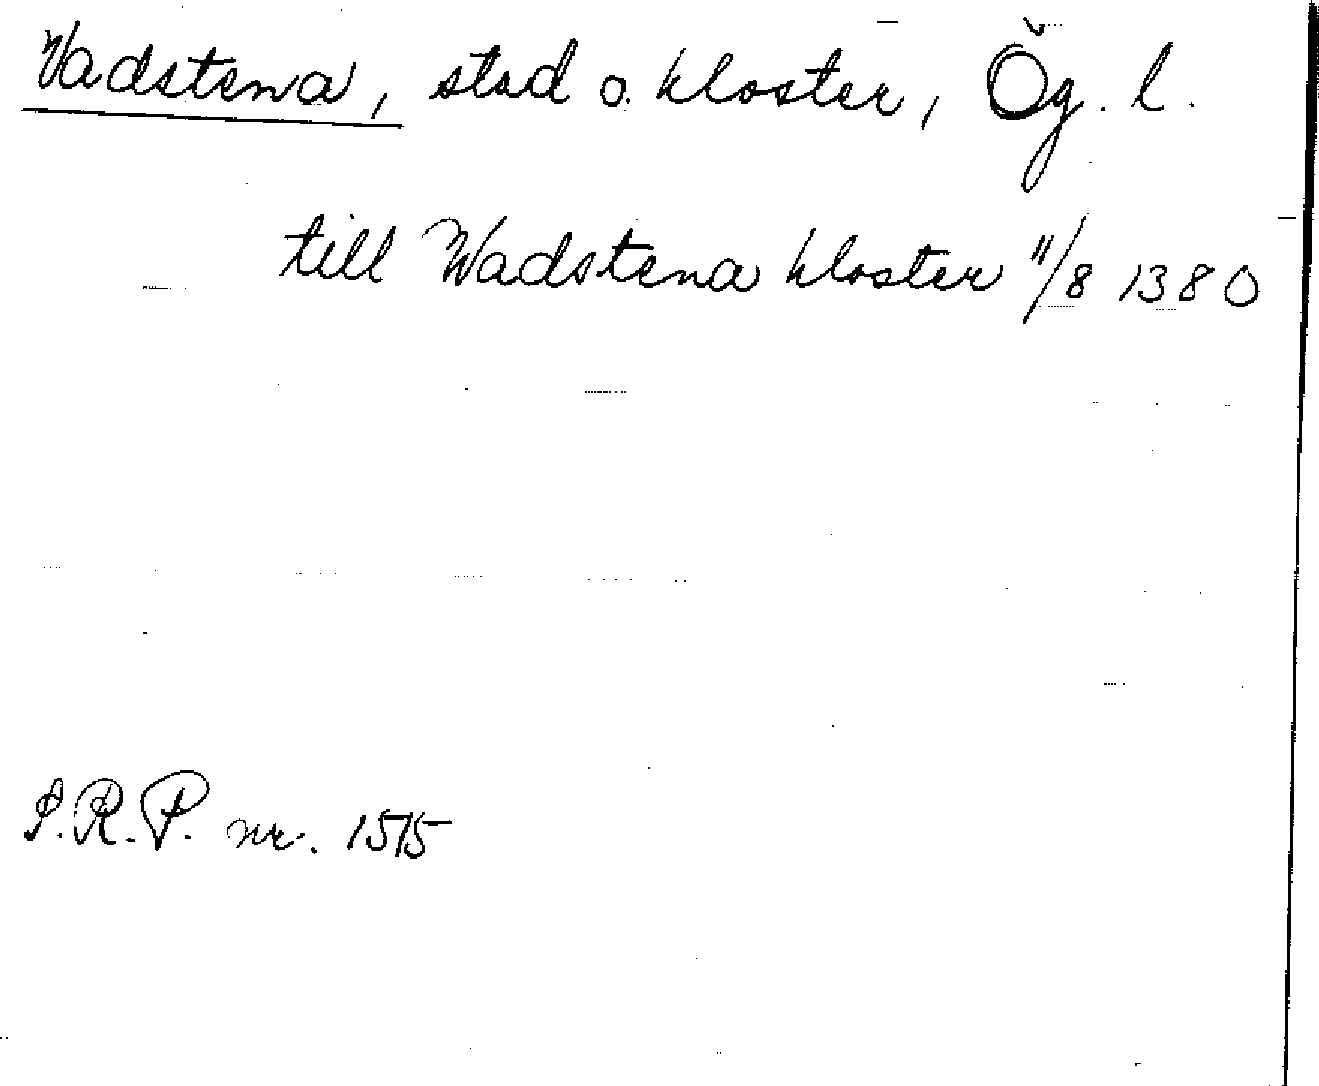 Vadstena, stad o. kloster, Ög. l.
till Wadstena kloster 11/8 1380
S.R.P. nr. 1515